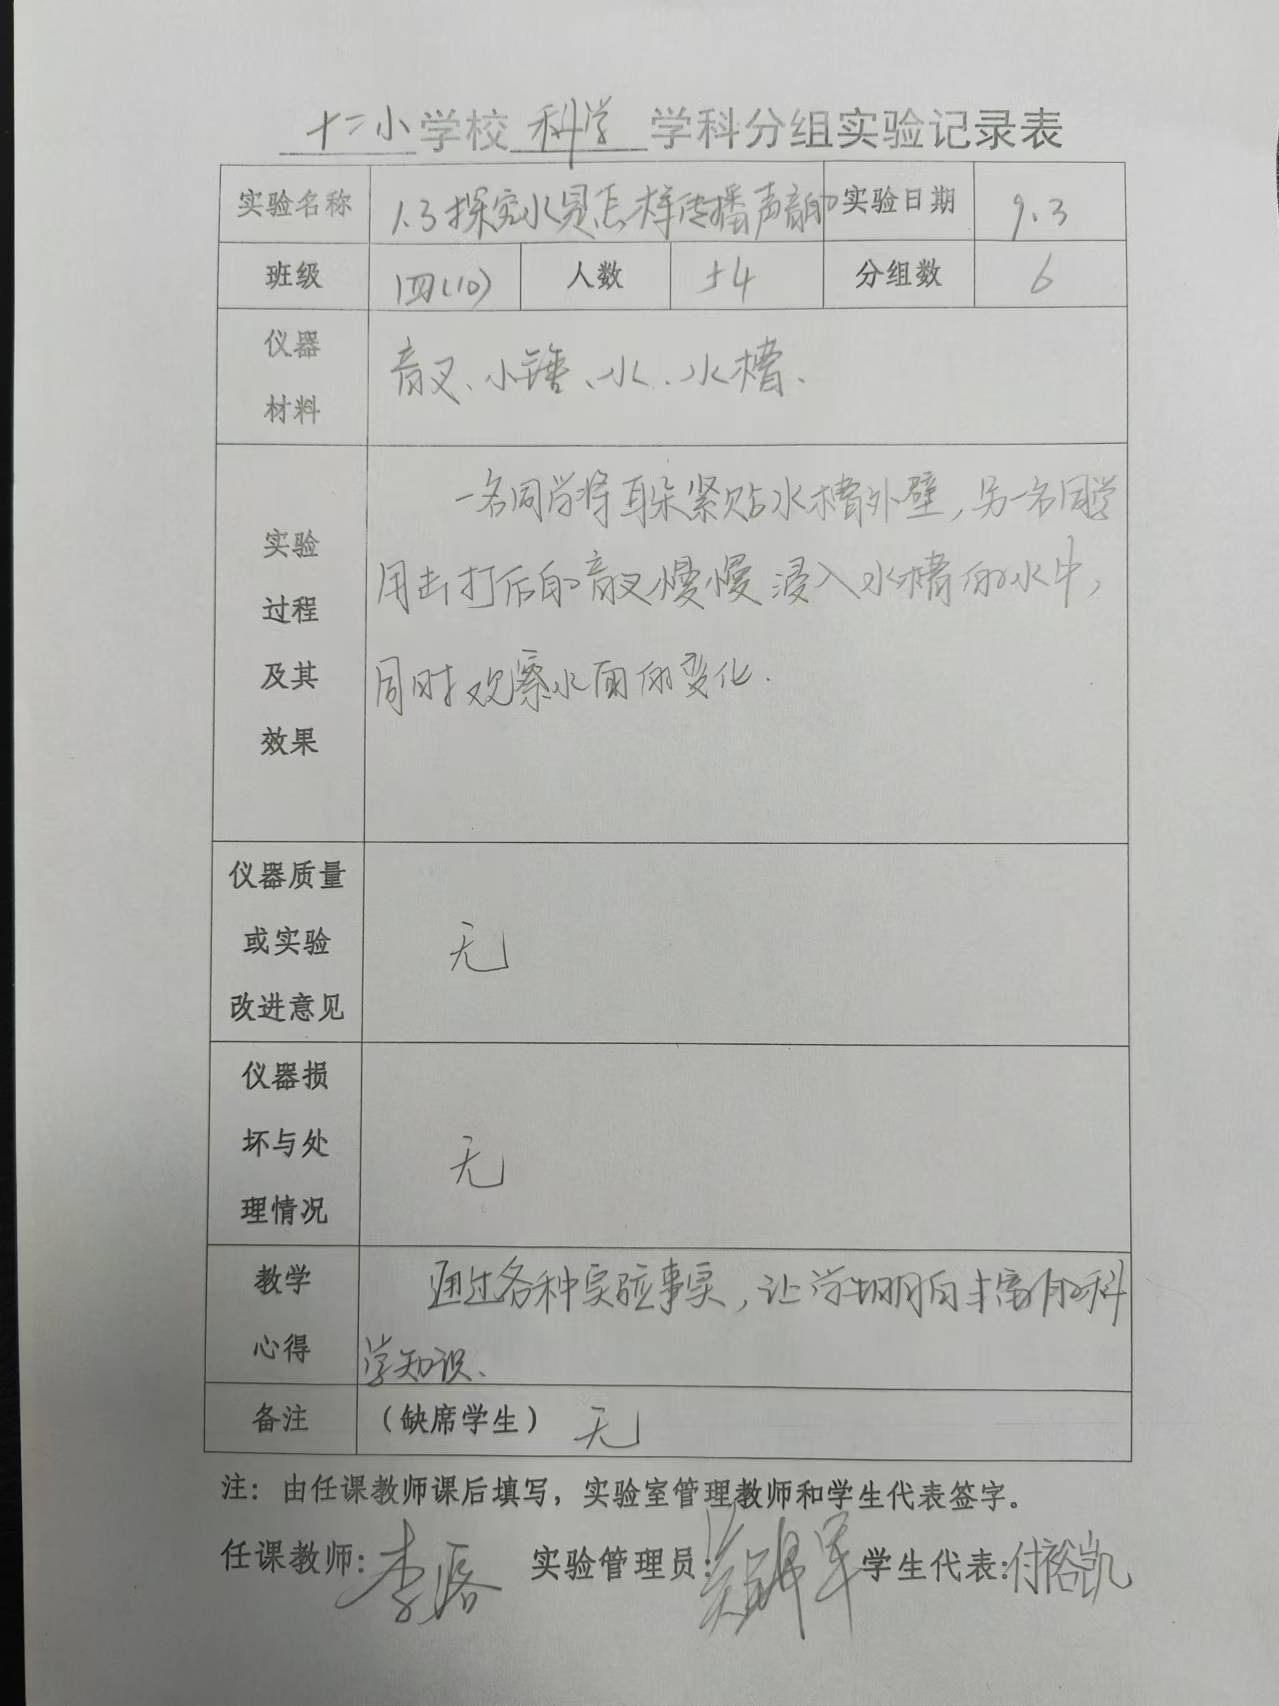 十二小学校 科学 学科分组实验记录表
实验名称 1.3探究水是怎样传播声音的 实验日期 9.3
班级 四(10) 人数 54 分组数 6
仪器
材料
音叉、小锤、水、水槽、
实验
过程
及其
效果
一名同学将耳朵紧贴水槽外壁,另一名同学
用击打后的音叉慢慢浸入水槽的水中,
同时观察水面的变化.
仪器质量
或实验
改进意见
无
仪器损
坏与处
理情况
无
教学
心得
通过各种实验事实,让学生明白丰富的科
学知识、
备注 (缺席学生) 无
注:由任课教师课后填写,实验室管理教师和学生代表签字。
任课教师: 李 实验管理员: 学生代表:付裕凯